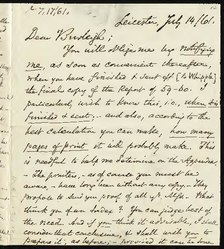 L 7,17/61.
Leicester, July 14/61.
Dear Burleigh;
You will oblige me by notifying
me, as soon as convenient thereafter,
when you have finished & sent off
the final copy of the Report of 59-60. I
particularly wish to know this, i.e., when
finished & sent; and also, according to the
best calculation you can make, how many
pages of print it will probably make. This
is needful to help me determine on the Appendix.
The printers, as of course you must be
aware, have long been without any copy. They
propose to send you proof of all of
think you of our views? You can judge best of
the need. And if you think it advisable, have
considerable conclusions, & shall wish you to
prepare it, as before;